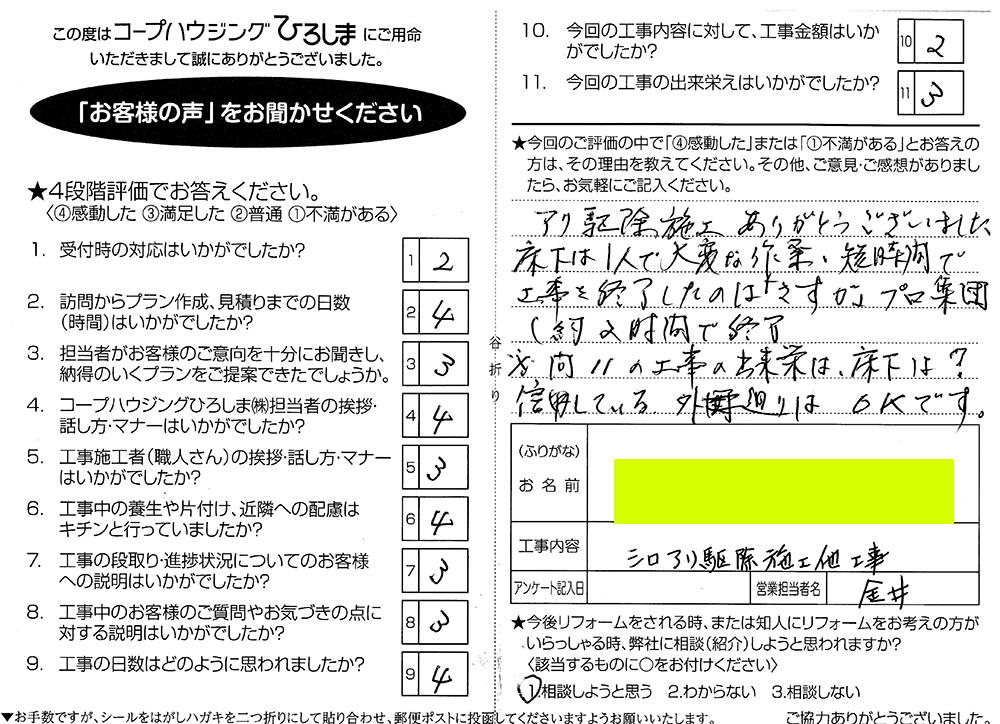 この度はコープハウジングひろしまにご用命
いただきまして誠にありがとうございました。
「お客様の声」をお聞かせください
★4段階評価でお答えください。
〈④感動した ③満足した ②普通 ①不満がある〉
1. 受付時の対応はいかがでしたか?
1 2
2. 訪問からプラン作成、見積りまでの日数
(時間)はいかがでしたか?
2 4
3. 担当者がお客様のご意向を十分にお聞きし、
納得のいくプランをご提案できたでしょうか。
3 3
4. コープハウジングひろしま㈱担当者の挨拶・
話し方・マナーはいかがでしたか?
4 4
5. 工事施工者(職人さん)の挨拶・話し方・マナー
はいかがでしたか?
5 3
6. 工事中の養生や片付け、近隣への配慮は
キチンと行っていましたか?
6 4
7. 工事の段取り・進捗状況についてのお客様
への説明はいかがでしたか?
7 3
8. 工事中のお客様のご質問やお気づきの点に
対する説明はいかがでしたか?
8 3
9. 工事の日数はどのように思われましたか?
9 4
▼お手数ですが、シールをはがしハガキを二つ折りにして貼り合わせ、郵便ポストに投函してくださいますようお願いいたします。
谷折り
10. 今回の工事内容に対して、工事金額はいか
がでしたか?
10 2
11. 今回の工事の出来栄えはいかがでしたか?
11 3
★今回のご評価の中で「④感動した」または「①不満がある」とお答えの
方は、その理由を教えてください。その他、ご意見・ご感想がありまし
たら、お気軽にご記入ください。
アリ駆除施工 ありがとうございました
床下は1人で大変な作業、短時間で
工事を終了したのは「さすが」プロ集団
(約2時間で終了
質問11の工事の出来栄は、床下は?
信用している 外廻りは OKです。
(ふりがな)
お名前
工事内容
シロアリ駆除施工他工事
アンケート記入日
営業担当者名
金井
★今後リフォームをされる時、または知人にリフォームをお考えの方が
いらっしゃる時、弊社に相談(紹介)しようと思われますか?
〈該当するものに○をお付けください〉
1.相談しようと思う 2.わからない 3.相談しない
ご協力ありがとうございました。